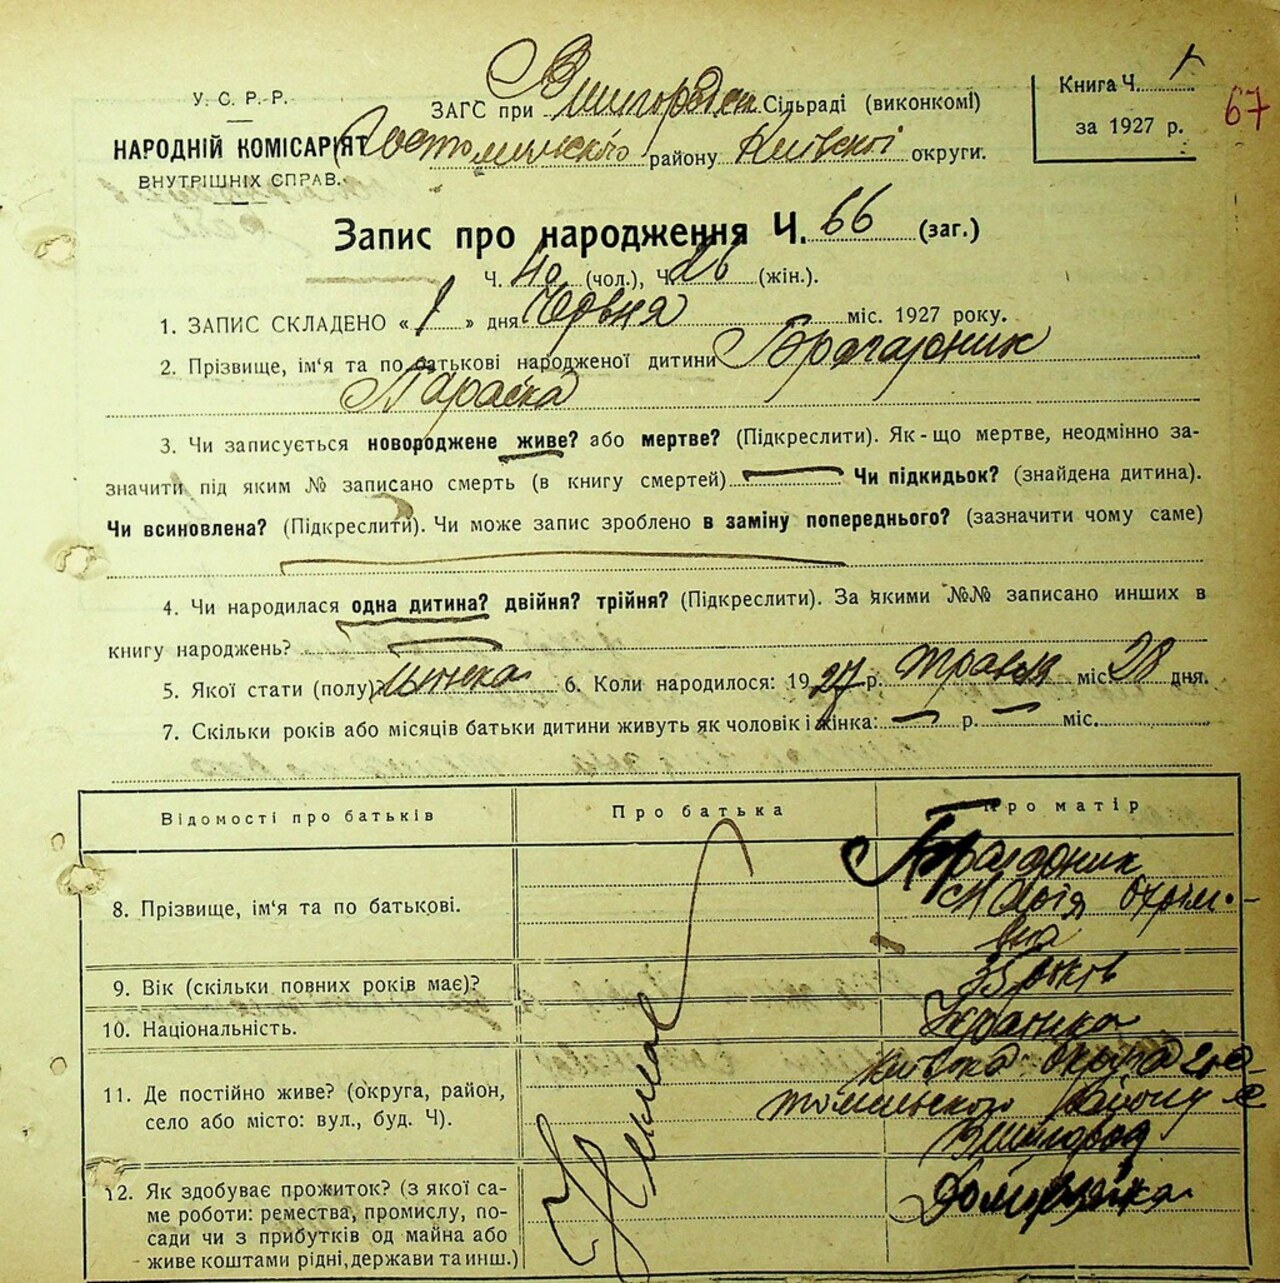 У. С. Р. Р.
НАРОДНІЙ КОМІСАРІЯТ
ВНУТРІШНІХ СПРАВ.
ЗАГС при Вишгородск Сільраді (виконкомі)
Гостомельского району Київскої округи.
Книга Ч. 1
за 1927 р.
67
Запис про народження Ч. 66 (заг.)
Ч. 40 (чол.), Ч. 26 (жін.).
1. ЗАПИС СКЛАДЕНО « 1 » дня Червня міс. 1927 року.
2. Прізвище, ім'я та по батькові народженої дитини Брагарник
Параска
3. Чи записується новороджене живе? або мертве? (Підкреслити). Як-що мертве, неодмінно за-
значити під яким № записано смерть (в книгу смертей) Чи підкидьок? (знайдена дитина).
Чи всиновлена? (Підкреслити). Чи може запис зроблено в заміну попереднього? (зазначити чому саме)
4. Чи народилася одна дитина? двійня? трійня? (Підкреслити). За якими №№ записано инших в
книгу народжень?
5. Якої стати (полу) жіноча 6. Коли народилося: 1927 р. травня міс. 28 дня.
7. Скільки років або місяців батьки дитини живуть як чоловік і жінка: — р. — міс.
Відомості про батьків Про батька Про матір
8. Прізвище, ім'я та по батькові. Брагарник
Марія Охрім-
вна
9. Вік (скільки повних років має)? років
10. Національність. Українка
11. Де постійно живе? (округа, район,
село або місто: вул., буд. Ч).
Київська округа Гос-
томельского району с
Вишгород
Немає
12. Як здобуває прожиток? (з якої са-
ме роботи: ремества, промислу, по-
сади чи з прибутків од майна або
живе коштами рідні, держави та инш.)